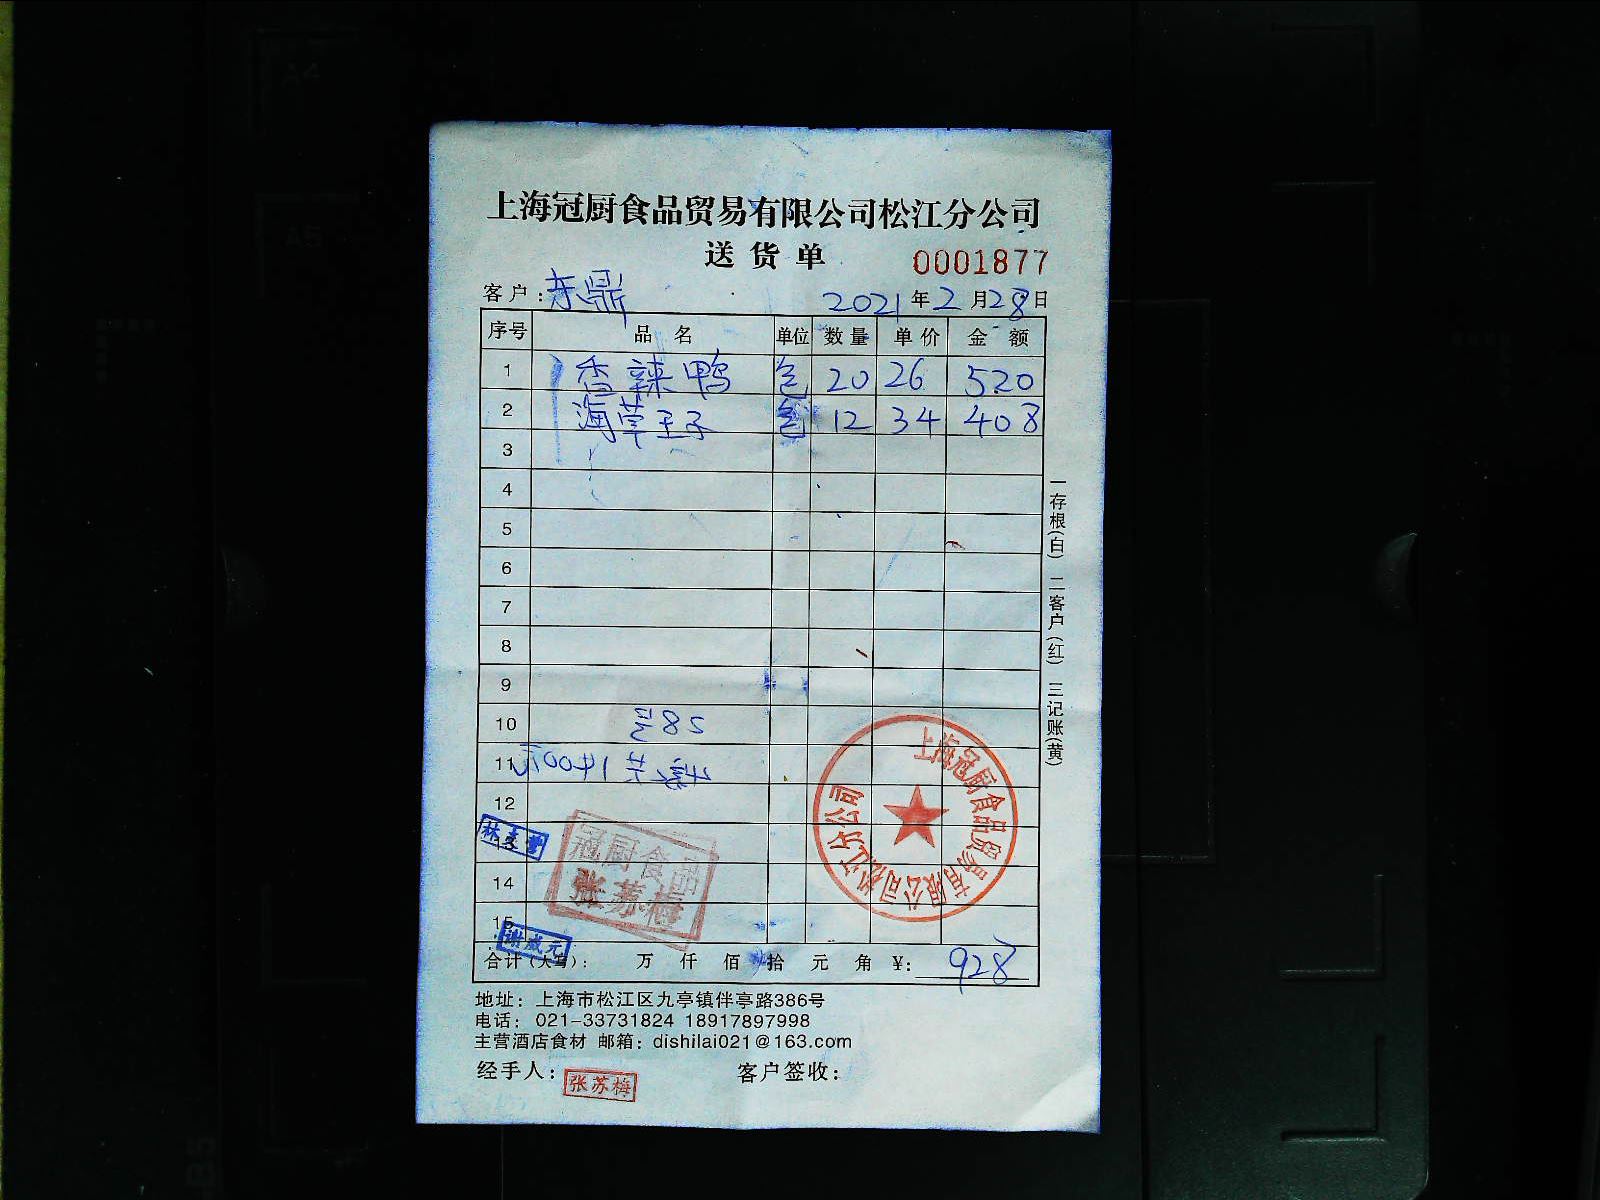 上海冠厨食品贸易有限公司松江分公司
送货单 0001877
客户：东鼎 2021年2月28日
序号 品名 单位 数量 单价 金额
1 香辣鸭 包 20 26 520
2 海草王子 包 12 34 408
3
4
5
6
7
8
9
10
11
12
14
15
一存根(白) 二客户(红) 三记账(黄)
冠厨食品
张苏梅
上海冠厨食品贸易有限公司松江分公司
合计(大写)： 万 仟 佰 拾 元 角 ¥：928
地址：上海市松江区九亭镇伴亭路386号
电话：021-33731824 18917897998
主营酒店食材 邮箱：dishilai021@163.com
经手人：张苏梅 客户签收：